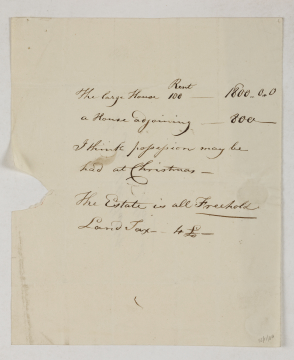 Rent
The large House 100 — 1800-0.0
a House adjoining — 800 —
I think possession may be
had at Christmas —
The Estate is all Freehold
Land Tax - 4£ —